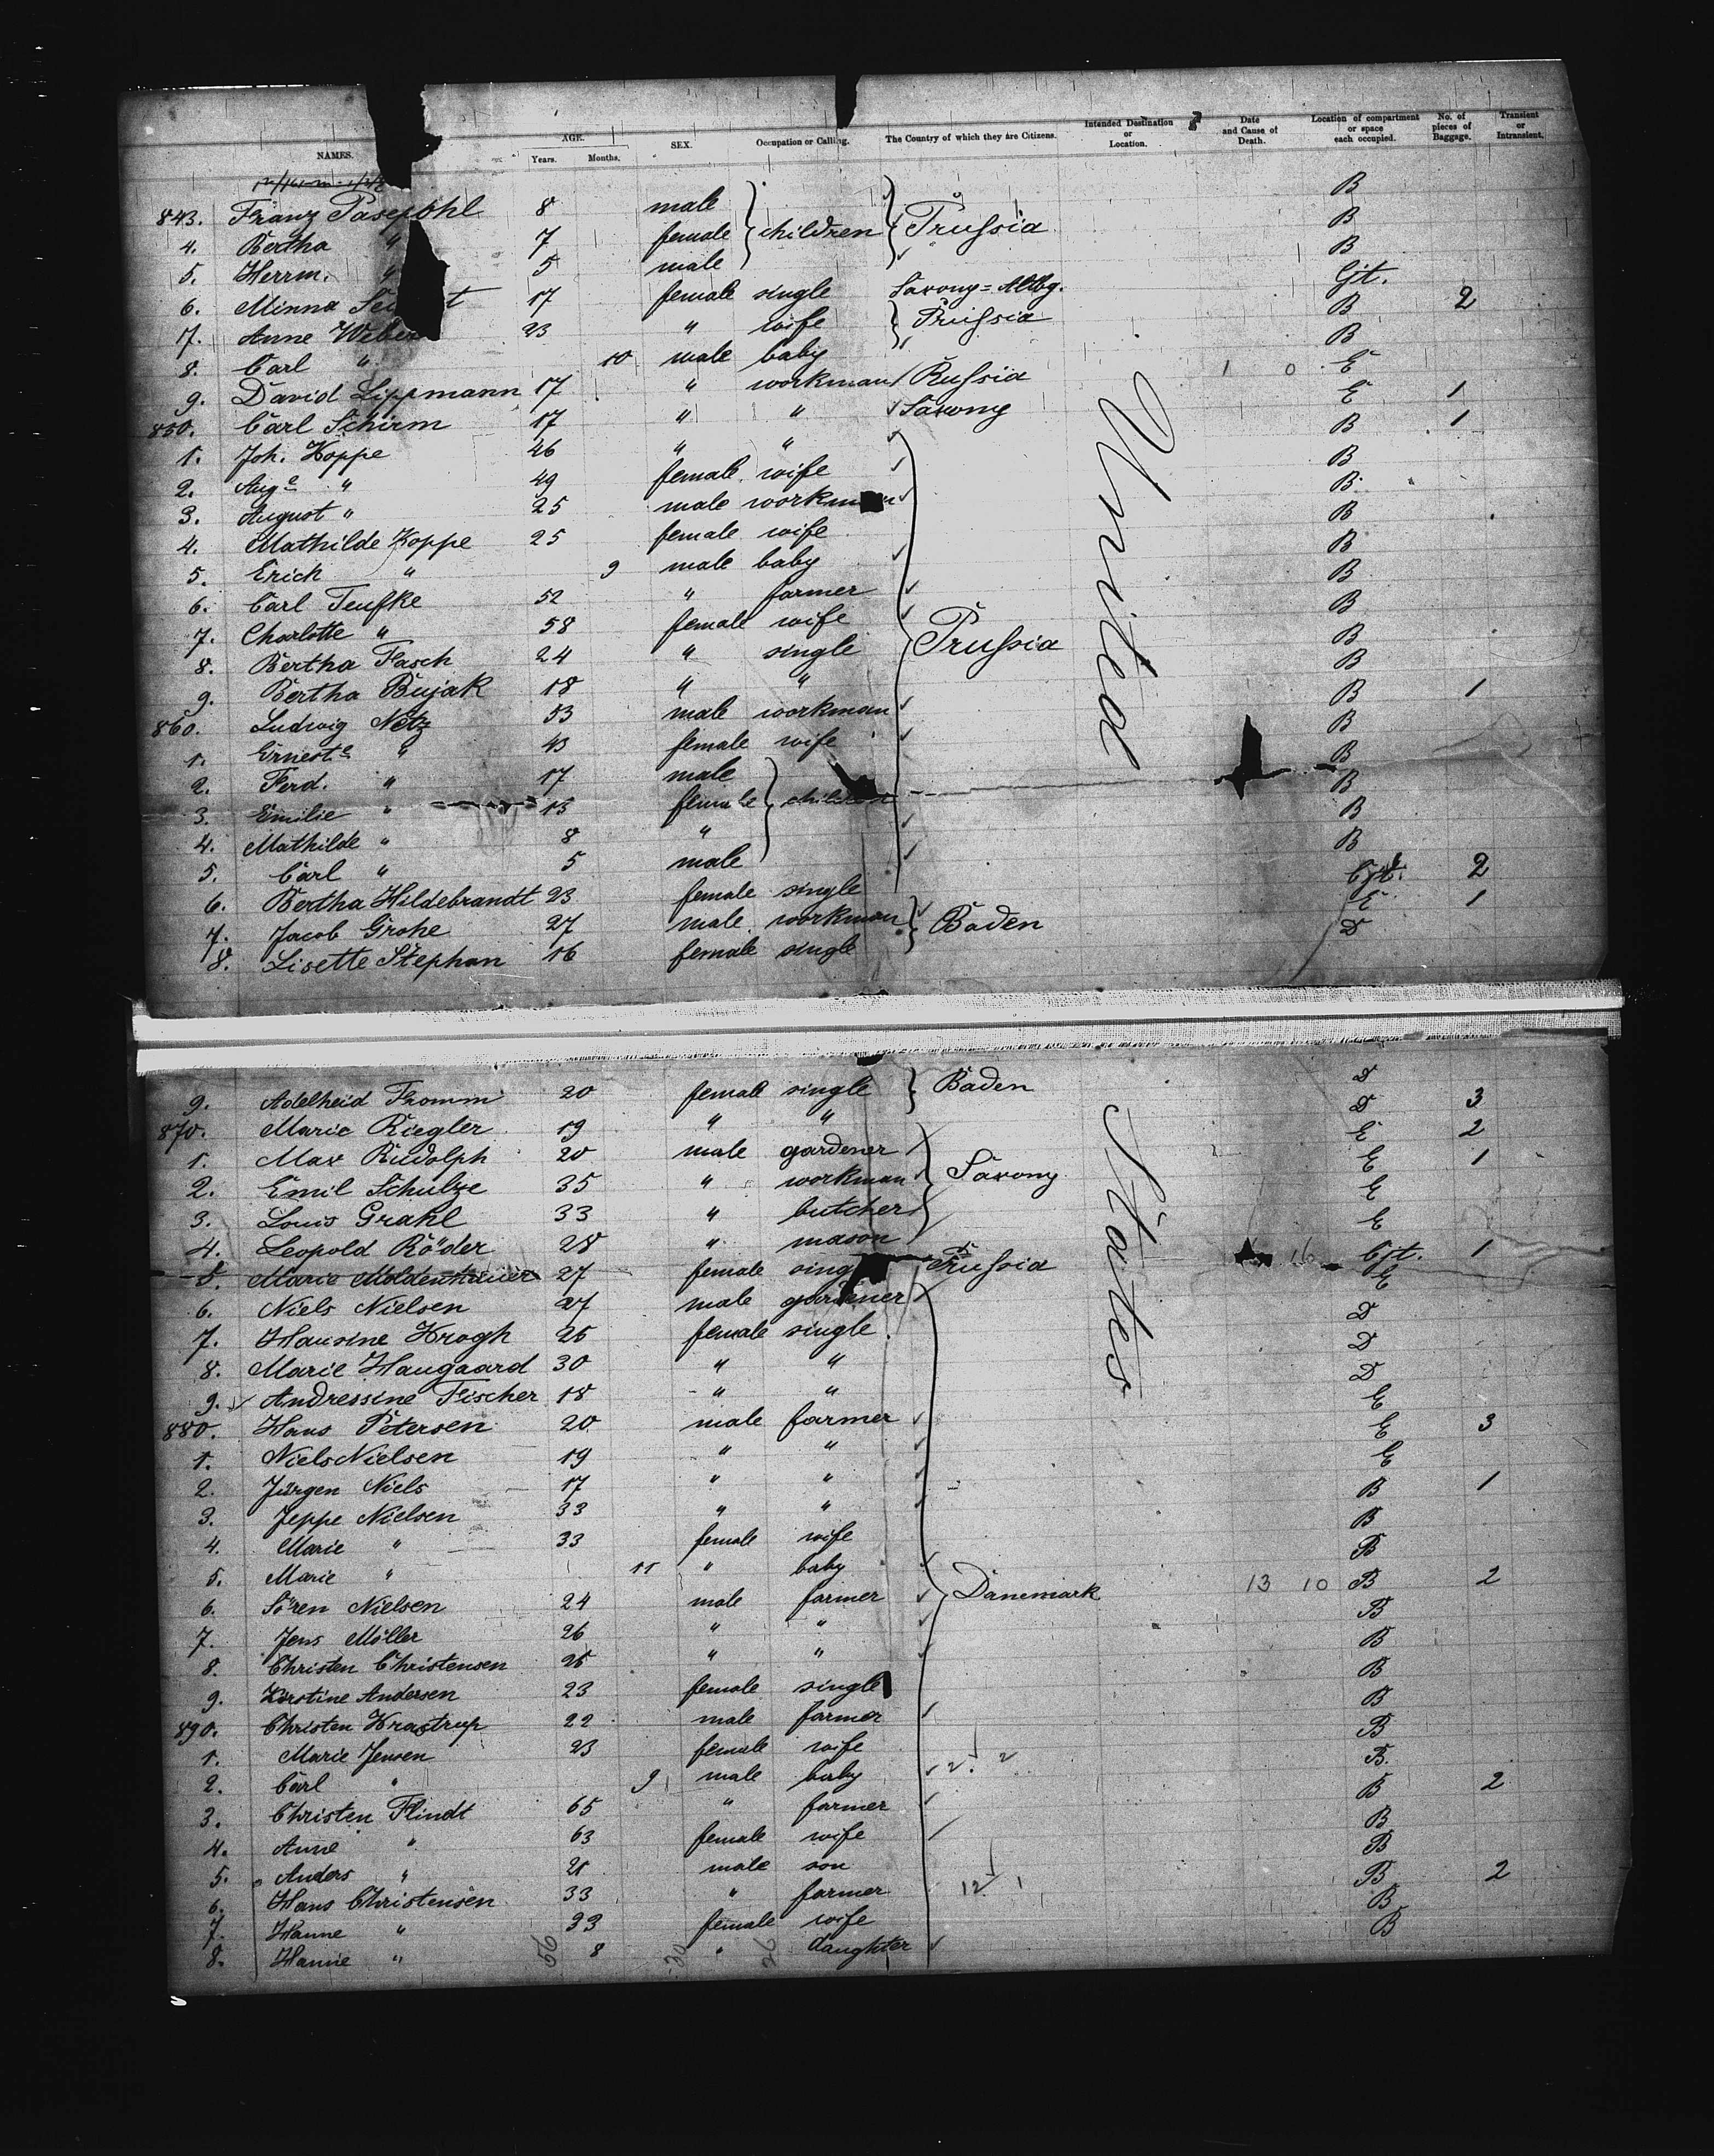 NAMES. AGE. Years. Months. SEX. Occupation or Calling. The Country of which they are Citizens. Intended Destination or Location. Date and Cause of Death. Location of compartment or space each occupied. No. of pieces of Baggage. Transient or Intransient.
843. Franz Pasepohl 8 male children Prussia B
4. Bertha " 7 female B
5. Herrm. " 5 male B
6. Minna 17 female single Saxony=Altbg. Cjt.
7. Anne Weber 23 " wife Prussia B 2
8. Carl " 10 male baby B
9. David Lippmann 17 " workman Russia 1 0 E
850. Carl Schirm 17 " " Saxony E 1
1. Joh. Koppe 46 " " B 1
2. Auge " 49 female wife B
3. August " 25 male workman B
4. Mathilde Koppe 25 female wife B
5. Erich " 9 male baby B
6. Carl Teufke 52 " farmer B
7. Charlotte " 58 female wife B
8. Bertha Fasch 24 " single Prussia B
9. Bertha Bujak 18 " " B
860. Ludwig Netz 53 male workman B 1
1. Erneste " 43 female wife B
2. Ferd. " 17 male children B
3. Emilie " 15 female B
4. Mathilde " 8 " B
5. Carl " 5 male B
6. Bertha Hildebrandt 23 female single Cjt. 2
7. Jacob Grohe 27 male workman Baden E 1
8. Lisette Stephan 16 female single D
United
9. Adelheid Fromm 20 female single Baden D
870. Marie Riegler 19 " " D 3
1. Max Rudolph 20 male gardener Saxony E 2
2. Emil Schulze 35 " workman E 1
3. Louis Grahl 33 " butcher E
4. Leopold Röder 28 " mason E
5. Marie Moldenhauer 27 female single Prussia 16 Cjt. 1
6. Niels Nielsen 27 male gardener E
7. Hansine Krogh 25 female single D
8. Marie Haugaard 30 " " D
9. Andressine Fischer 18 " " D
880. Hans Petersen 20 male farmer E
1. Niels Nielsen 19 " " E 3
2. Jürgen Niels 17 " " E
3. Jeppe Nielsen 33 " " B 1
4. Marie " 33 female wife B
5. Marie " 11 " baby B
6. Sören Nielsen 24 male farmer Danemark 13 10 B 2
7. Jens Möller 26 " " B
8. Christen Christensen 25 " " B
9. Kirstine Andersen 23 female single B
890. Christen Krastrup 22 male farmer B
1. Marie Jensen 23 female wife B
2. Carl " 9 male baby B
3. Christen Flindt 65 " farmer B 2
4. Anne " 63 female wife B
5. Anders " 21 male son B
6. Hans Christensen 33 " farmer 12 1 B 2
7. Hanne " 33 female wife B
8. Hanne " 8 " daughter B
States
56 30 26